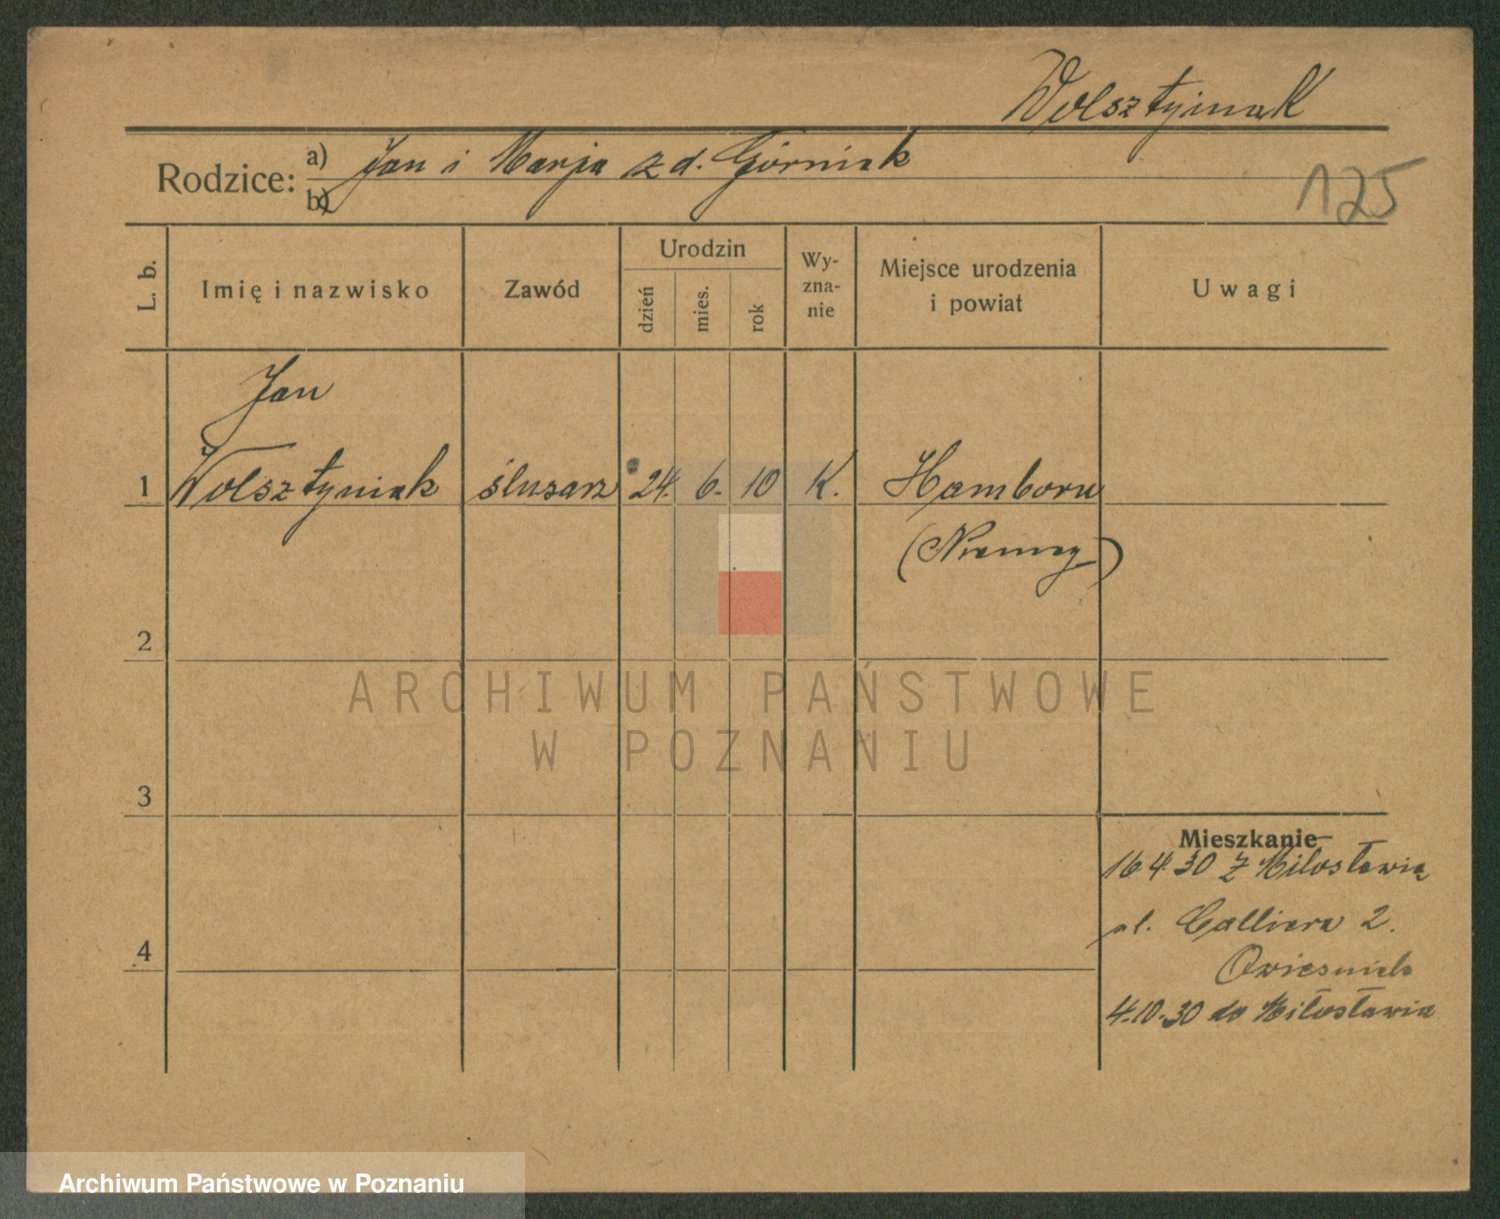 Wolsztyniak
Rodzice: a) Jan i Marja z d. Górniak
b)
125
L. b.
Imię i nazwisko
Zawód
Urodzin
dzień
mies.
rok
Wy-
zna-
nie
Miejsce urodzenia
i powiat
Uwagi
Jan
1 Wolsztyniak ślusarz 24. 6. 10 K. Hamborn
(Niemcy)
2
3
4
Mieszkanie
16 4 30 z Miłosławia
ul. Calliera 2.
4.10.30 do Miłosławia
ARCHIWUM PAŃSTWOWE
W POZNANIU
Archiwum Państwowe w Poznaniu